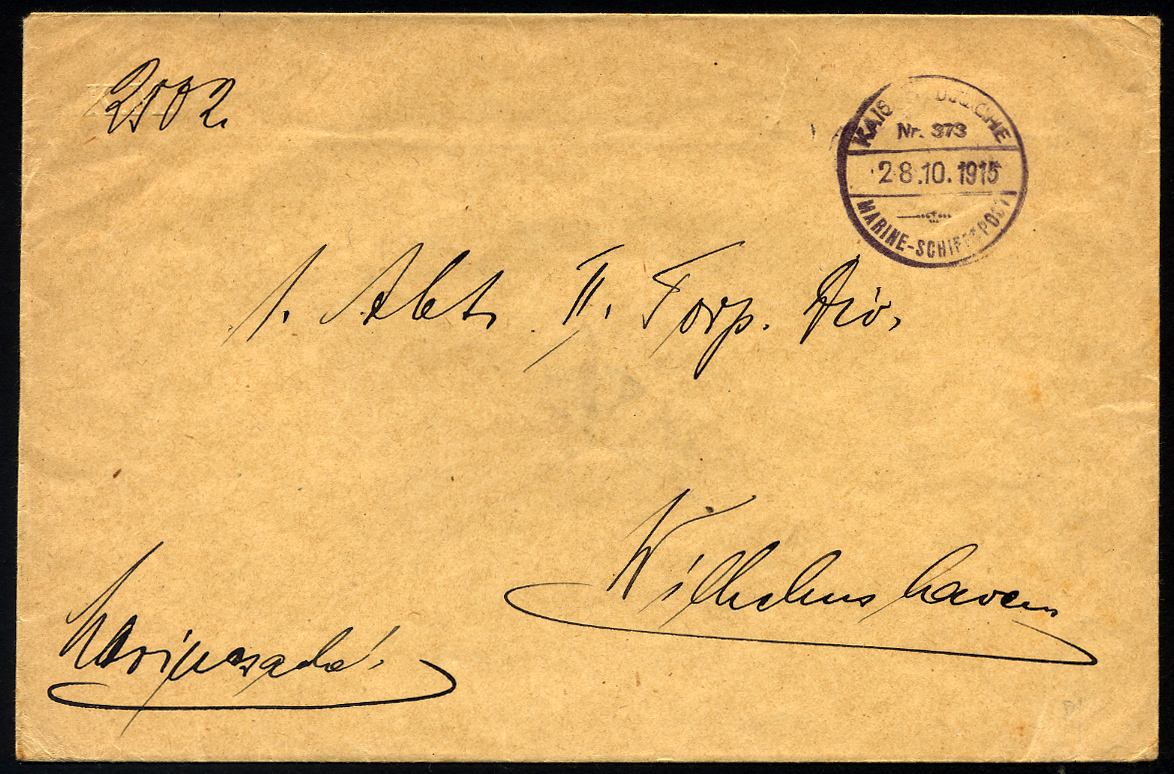 2502.
KAIS. DEUTSCHE
Nr. 373
28.10.1915
MARINE-SCHIFFSPOST
1. Abt. II. Torp. Div.
Wilhelmshaven
Marinesache.